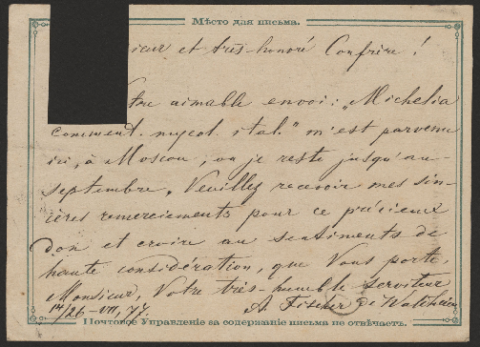 Мѣсто для письма.
ieur et très-honoré Confrère !
tre aimable envoi: „Michelia
comment. mycol. ital." m'est parvenu
ici, à Moscou, ou je reste jusqu'au
septembre. Veuillez recevoir mes sin-
cères remerciements pour ce précieux
don et croire au sentiments de
haute considération, que Vous porte,
Monsieur, Votre très-humble serviteur
A. Fischer de Waldheim
14/26-VII, 77.
Почтовое Управленіе за содержаніе письма не отвѣчаетъ.